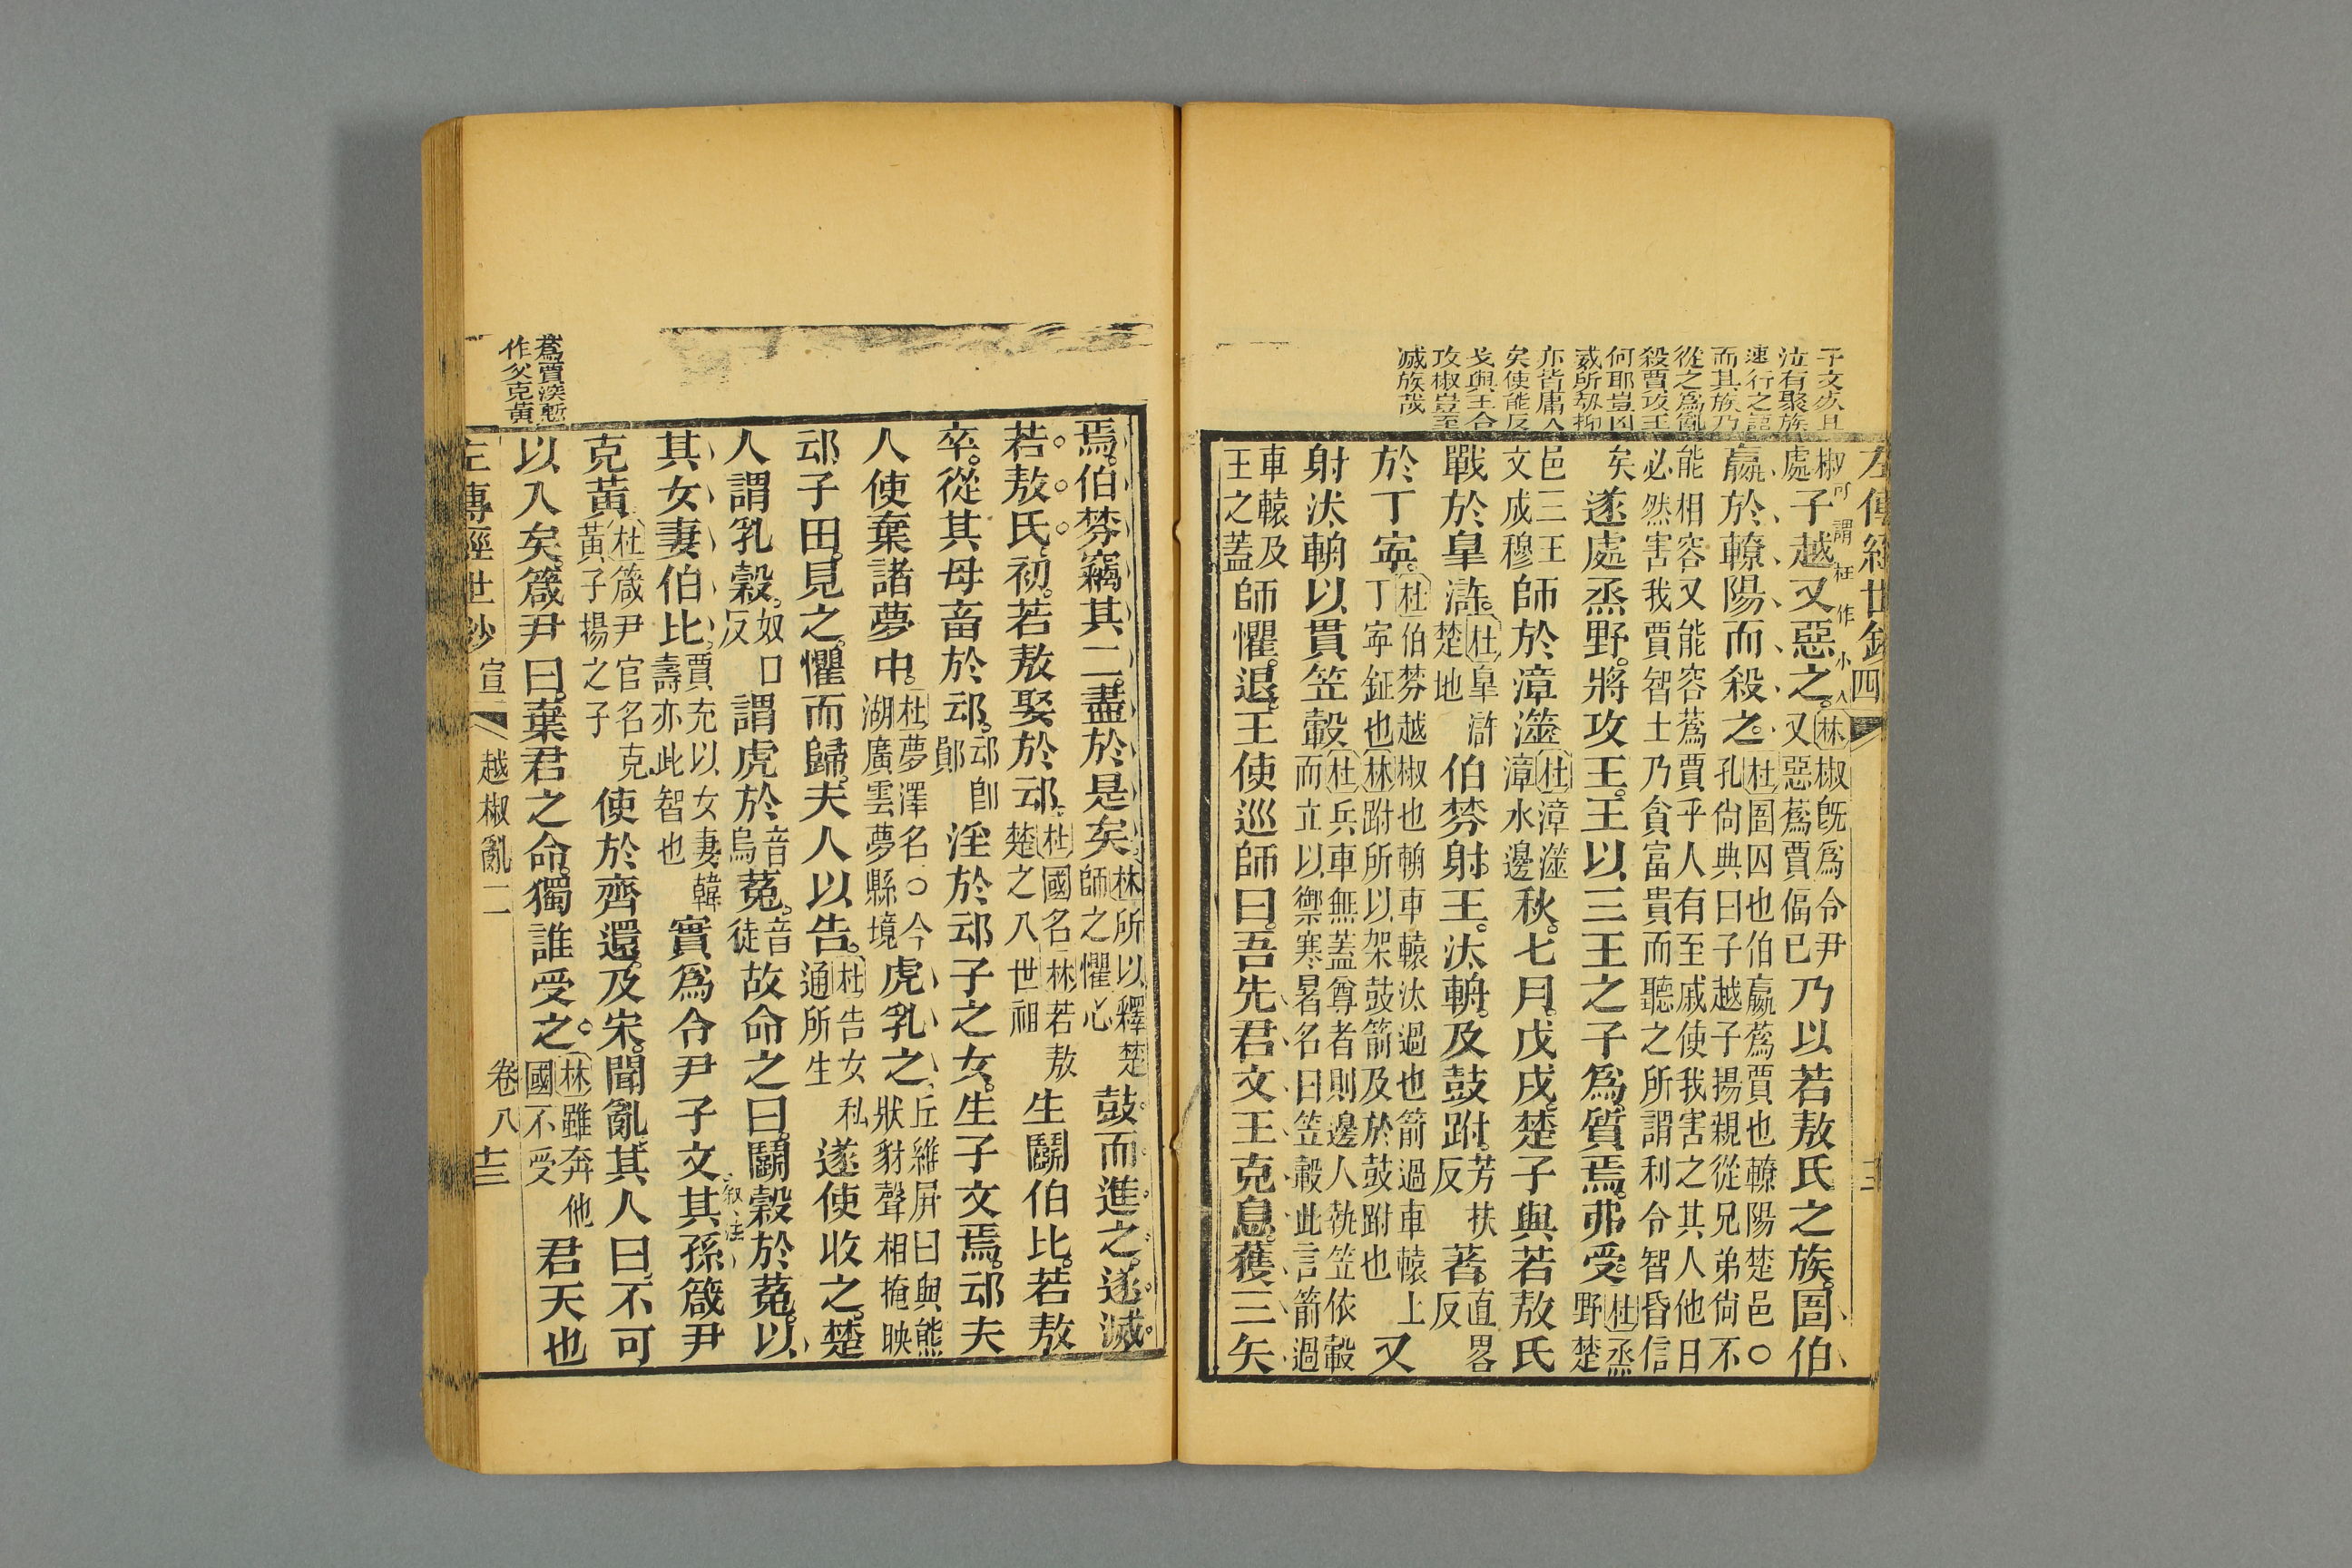 子文於且
泣有聚族
速行之語
而其族乃
從之爲亂
殺賈攻王
何耶豈因
威所刼抑
亦皆庸人
矣使能反
戈與王合
攻椒豈至
滅族哉
可謂枉作小人
椒處子越又惡之。林椒旣爲令尹又惡蔿賈偪已乃以若敖氏之族。圄伯
嬴於轑陽而殺之。杜圄囚也伯嬴蔿賈也轑陽楚邑○孔尙典曰子越子揚親從兄弟尙不
能相容又能容蔿賈乎人有至戚使我害之其人他日必然害我賈智士乃貪富貴而聽之所謂利令智昏信
矣遂處烝野。將攻王。王以三王之子爲質焉。弗受。杜烝野楚
邑三王文成穆師於漳澨杜漳澨漳水邊秋。七月。戊戌。楚子與若敖氏
戰於皐滸。杜皐滸楚地伯棼射王。汰輈。及鼓跗。芳扶反著。直畧反
於丁寧。杜伯棼越椒也輈車轅汰過也箭過車轅上丁寧鉦也林跗所以架鼓箭及於鼓跗也又
射汰輈以貫笠轂杜兵車無蓋尊者則邊人執笠依轂而立以禦寒暑名曰笠轂此言箭過
車轅及王之蓋師懼。退。王使巡師曰。吾先君文王克息。獲三矢
焉。伯棼竊其二。盡於是矣。林所以釋楚師之懼心鼓而進之。遂滅
若敖氏。初。若敖娶於䢵。杜國名林若敖楚之八世祖生鬬伯比。若敖
卒。從其母畜於䢵。䢵卽鄖淫於䢵子之女。生子文焉。䢵夫
人使棄諸夢中。杜夢澤名○今湖廣雲夢縣境虎乳之。丘維屏曰與熊狀豺聲相掩映
䢵子田。見之。懼而歸。夫人以告。杜告女私通所生遂使收之。楚
人謂乳穀。奴口反謂虎於音烏菟。音徒故命之曰。鬬穀於菟。以
其女妻伯比。賈充以女妻韓壽亦此智也實爲令尹子文其孫箴尹
克黃杜箴尹官名克黃子揚之子使於齊還。及宋。聞亂。其人曰。不可
以入矣。箴尹曰。棄君之命。獨誰受之。林雖奔他國不受君天也
左傳經世鈔 宣 越椒亂二 卷八 十三
作父克黃